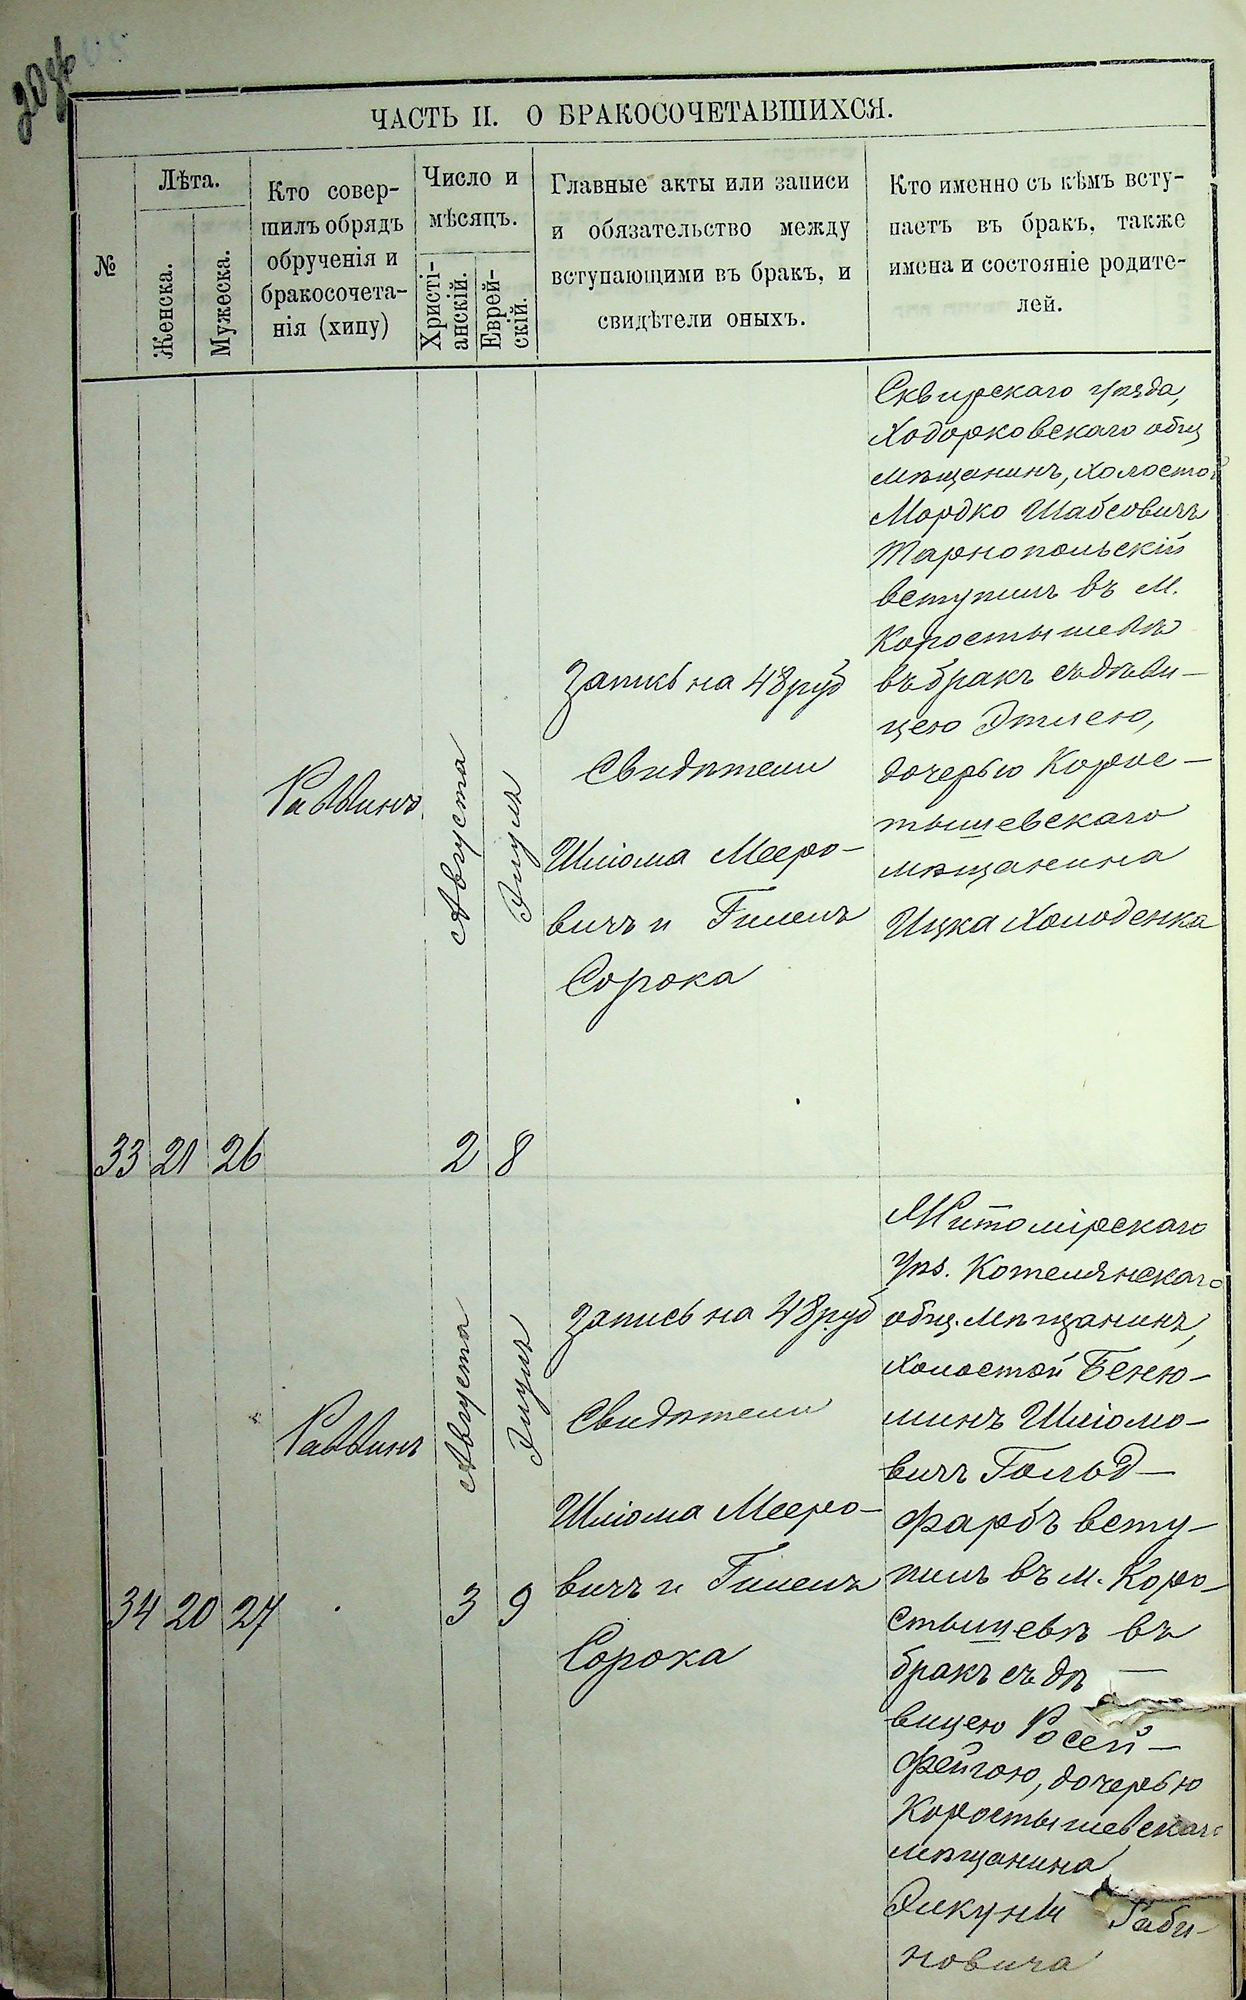 ЧАСТЬ II. О БРАКОСОЧЕТАВШИХСЯ.
№
Лѣта.
Женска.
Мужеска.
Кто совер-
шилъ обрядъ
обрученія и
бракосочета-
нія (хипу)
Число и
мѣсяцъ.
Христі-
анскій.
Еврей-
скій.
Главные акты или записи
и обязательство между
вступающими въ бракъ, и
свидѣтели оныхъ.
Кто именно съ кѣмъ всту-
паетъ въ бракъ, также
имена и состояніе родите-
лей.
33
21
26
Раввинъ
Августа
2
8
Запись на 48 руб
Свидѣтели
Шлiома Мееро-
вичъ и Гилель
Сорока
Сквирскаго уѣзда,
Ходорковскаго общ
мѣщанинъ, холостой
Мордко Шабсовичъ
Тарнопольскій
вступилъ въ м.
Коростышевѣ
въ бракъ съ дѣви-
цею Этлею,
дочерью Корос-
тышевскаго
мѣщанина
Ицка Холоденка
34
20
27
Раввинъ
Августа
3
9
Запись на 48 руб
Свидѣтели
Шлiома Мееро-
вичъ и Гилель
Сорока
Житомірскаго
уѣз. Котелянскаго
общ. мѣщанинъ,
холостой Беню-
минъ Шлiомо-
вичъ Гольд-
фарбъ всту-
пилъ въ м. Коро-
стышевѣ въ
бракъ съ дѣ-
вицею Росей-
Фейгою, дочерью
Коростышевскаго
мѣщанина
Раби-
новича